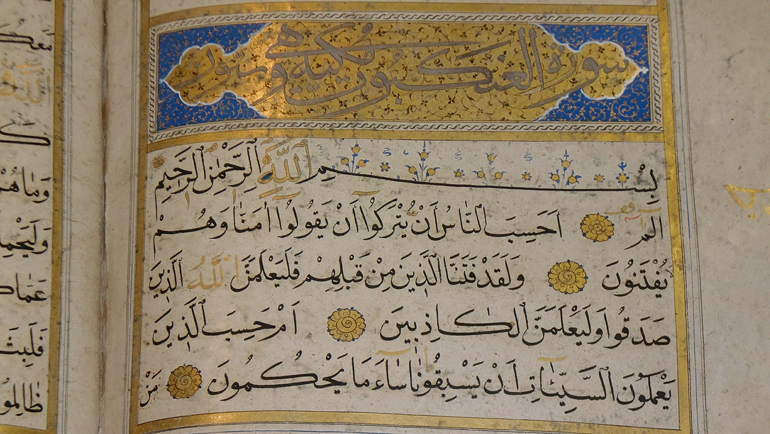 سورة العنكبوت مكية وهي
بسم الله الرحمن الرحيم
الم احسب الناس ان يتركوا ان يقولوا امنا وهم
يفتنون ولقد فتنا الذين من قبلهم فليعلمن الله الذين
صدقوا وليعلمن الكاذبين ام حسب الذين
يعملون السيئات ان يسبقونا ساء ما يحكمون من
وما هم
فلبث
ظالمو